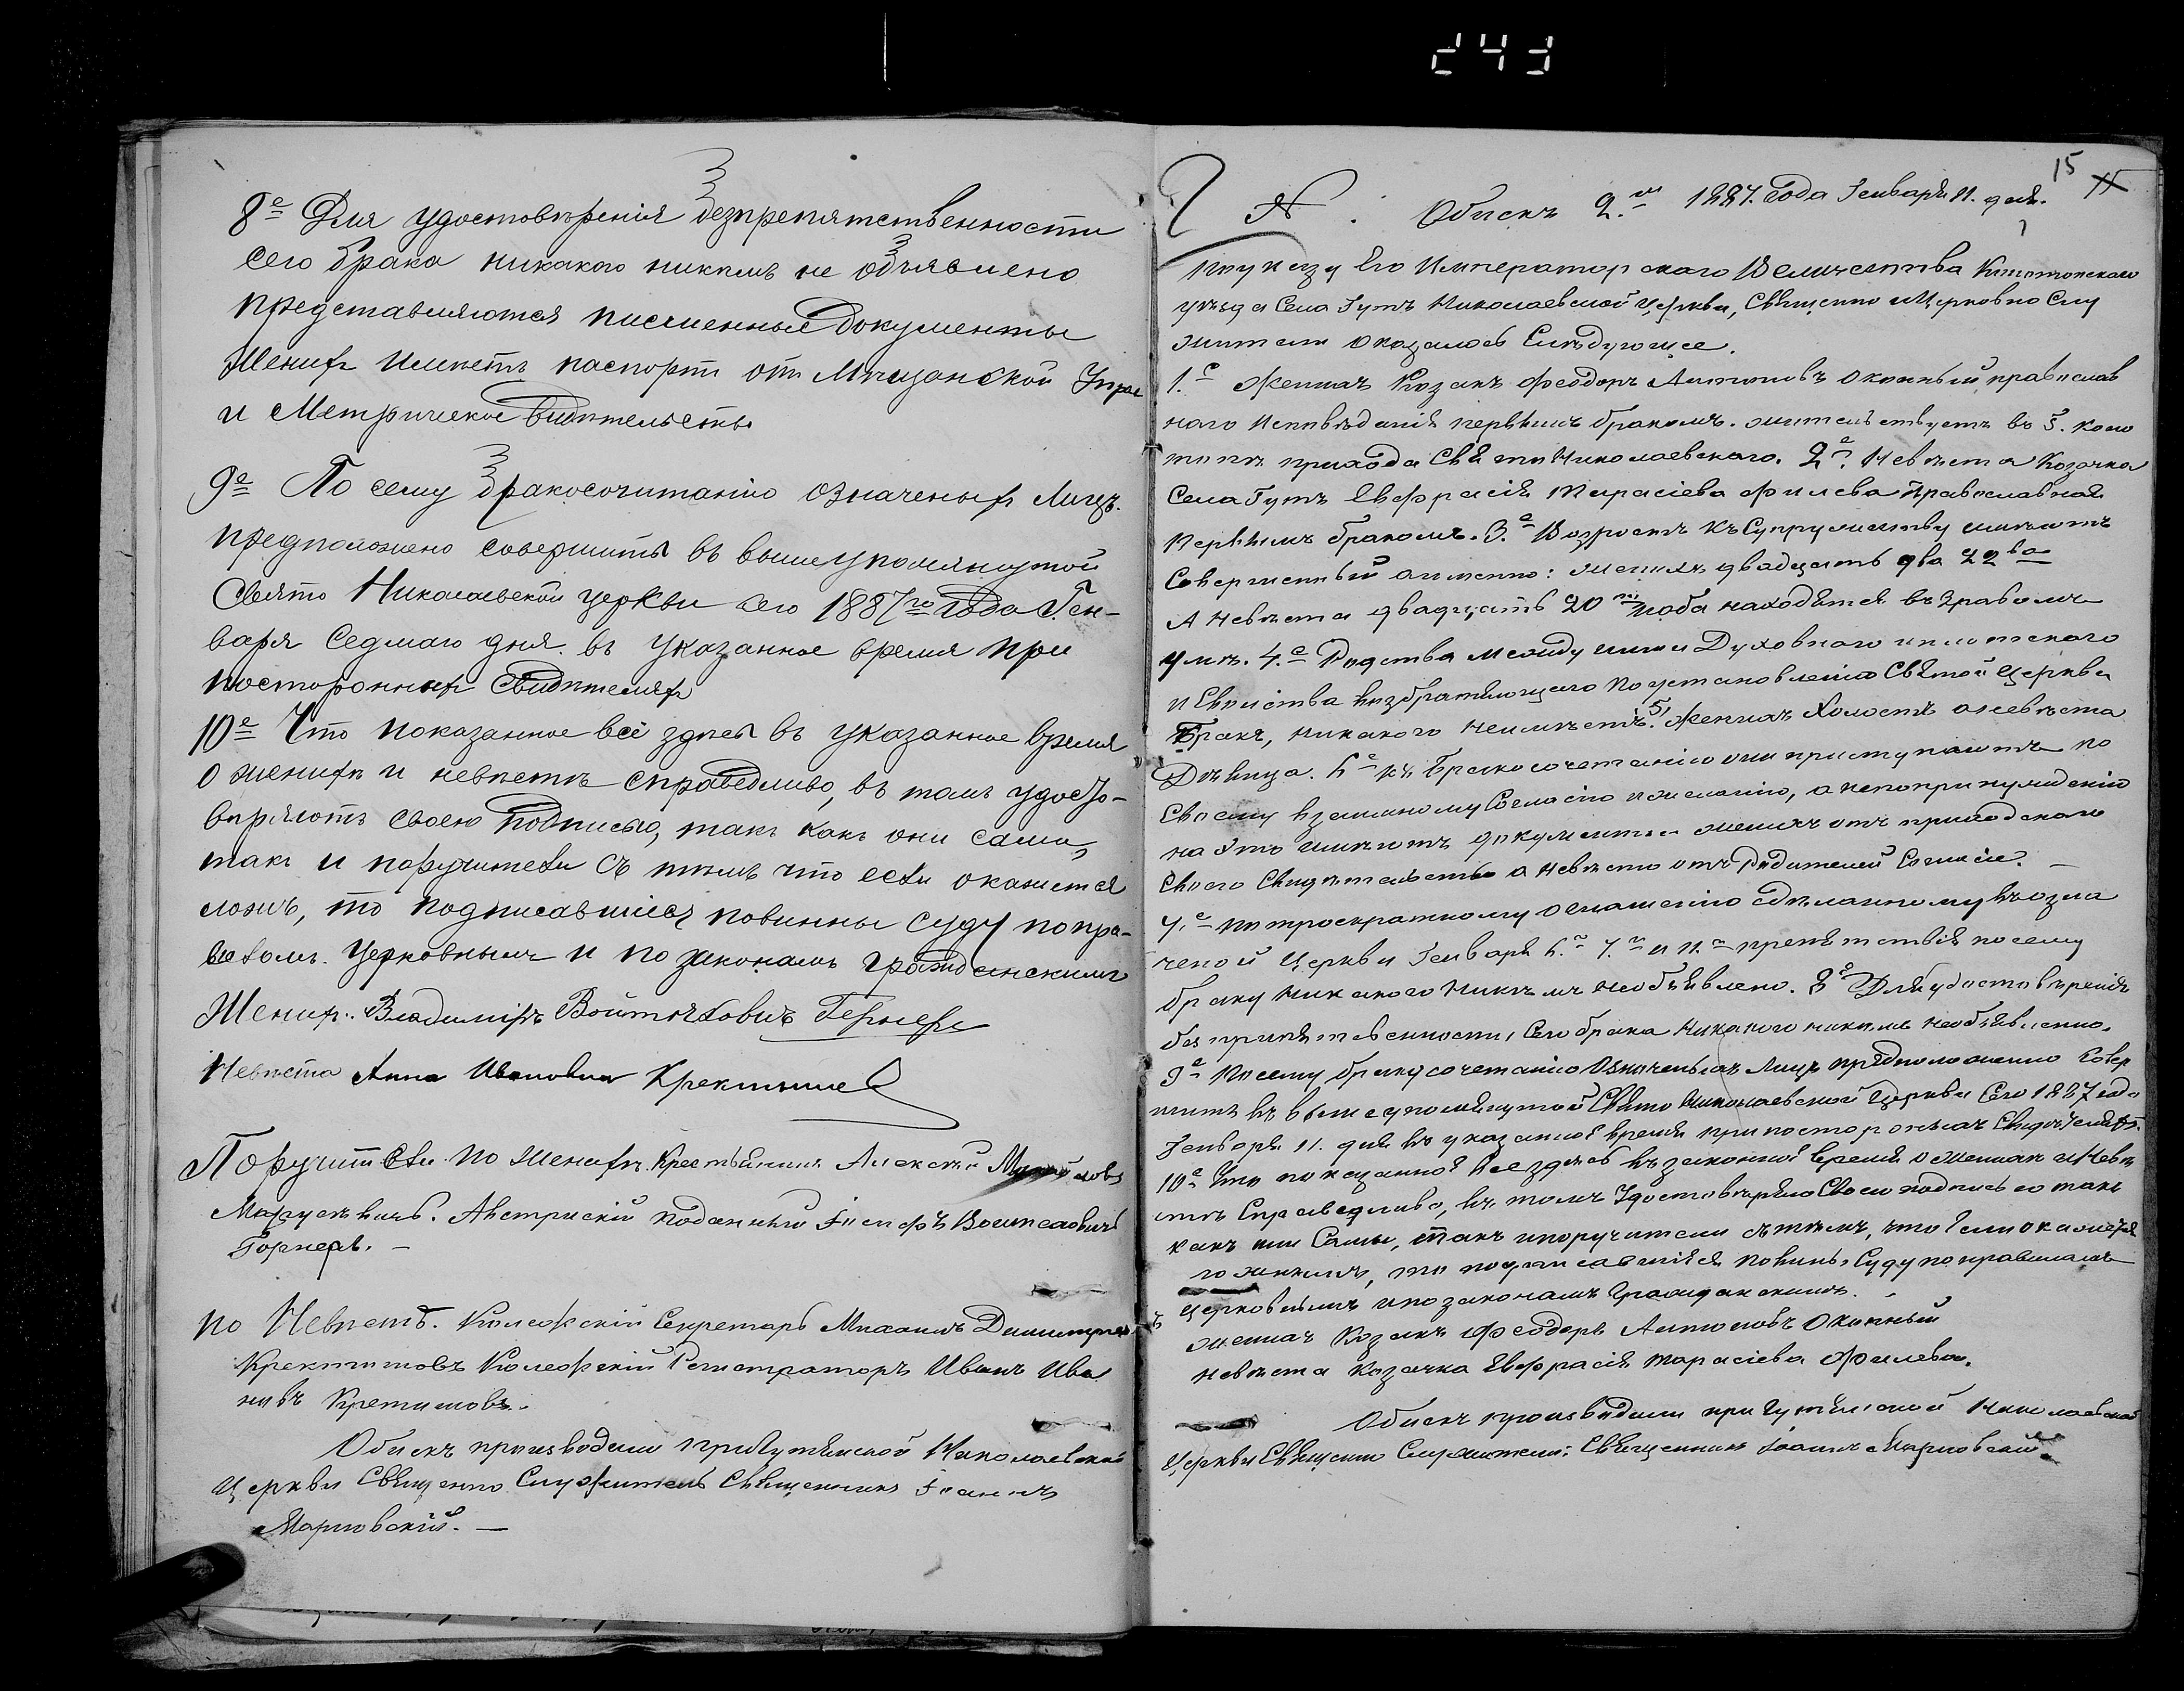 243
8е Для удостовѣренія безпрепятственности
сего брака никакого никѣмъ не объявлено
представляются писменные Документы
Женихъ имѣетъ паспортъ отъ Мѣщанской Упра
и Метрическое Свидѣтельство
9е По сему бракосочитанію означеныхъ Лицъ.
предположено совершить въ вышеупомянутой
Свято Николаевской церкви сего 1887го Года Ген-
варя Седмаго дня. въ указанное время при
постороннихъ Свидѣтеляхъ
10е Что показанное всё здѣсь въ указанное время
о женихѣ и невѣстѣ справедливо, въ томъ удосто-
вѣряютъ своею подписью, такъ какъ они сами,
такъ и поручители съ тѣмъ что если окажется
ложь, то подписавшіеся повинны суду по пра-
виламъ Церковнымъ и по законамъ гражданскимъ
Женихъ. Владиміръ Войтѣховичъ Гернеръ
Невѣста Анна Ивановна
Поручители По Женихѣ. Крестьянинъ Алексѣй
Австрискій поданный Іосифъ Воитеховичъ
Горнеръ. —
по Невѣстѣ. Колежскій Секретарь Михаилъ Димитріев
Колежскій Регистраторъ Иванъ Ива
новъ
Обыскъ производили при Гутянской Николаевской
Церкви Священно Служитель Священникъ Іоаннъ
Марковскій. —
15
№ : Обыскъ 2.й 1887. Года Генваря 11. дня.
По указу Его Императорскаго Величества Конотопскаго
уѣзда Села Гутъ Николаевской Церкви, Священно и Церковно Слу
жители оказалось Слѣдующее.
1.е Женихъ Козакъ Феодоръ Антоновъ Оконный православ
наго Исповѣданія первымъ бракомъ. жительствуетъ въ г. Коно
топѣ прихода Свято Николаевскаго. 2е. Невѣста Козачка
Села Гутъ Евфрасія Тарасіева Филева Православная
Первымъ бракомъ. 3.е Возростъ къ Супружеству имѣютъ
Совершенный а именно: женихъ двадцать два 22ва
А невѣста двадцать 20ть и оба находятся въ здравомъ
умѣ. 4.е Родства между ними Духовного и плотскаго
и Свойства возбраняющаго по установленію Святой Церкви
Бракъ, никакого неимѣетъ. 5, Женихъ Холостъ а невѣста
Дѣвица. 6е къ бракосочетанію они приступаютъ по
Своему взаимному Согласію и желанію, а непопринужденію
на это имѣютъ документы женихъ отъ приходскаго
Своего Свидѣтельство а невѣста отъ Родителей Согласіе. —
7.е по троекратному оглашенію сдѣланному въ озна
ченой Церкви Генваря 6.го 7.го и 11.го препятствія посему
браку никакого никѣмъ необъявлено. 8е Для удостовѣренія
безпрепятственности, Сего брака никакого никѣмъ необъявленно.
9е По сему бракусочетанію означеныхъ Лицъ предположенно Совер
шить въ вышеупомянутой Свято Николаевской Церкви Сего 1887 года
Генворя 11. дня въ указанное время при посторонныхъ Свидѣтеляхъ.
10е Что показанное все здѣсь въ законное время о женихѣ и Невѣ
стѣ Справедливо, въ томъ Удостовѣряю Своею подписью такъ
какъ они Самы, такъ и поручители съ тѣмъ, что если окажется
ложнымъ, то подписавшіяся повины Суду по правиламъ
Церковнымъ и по законамъ Гражданскимъ.
женихъ Козакъ Феодоръ Антоновъ Оконный
невѣста Козачка Евфрасія Тарасіева Филева.
Обыскъ производили при Гутянской Николаевской
Церкви Священно Служители: Священникъ Іоаннъ Марковскій